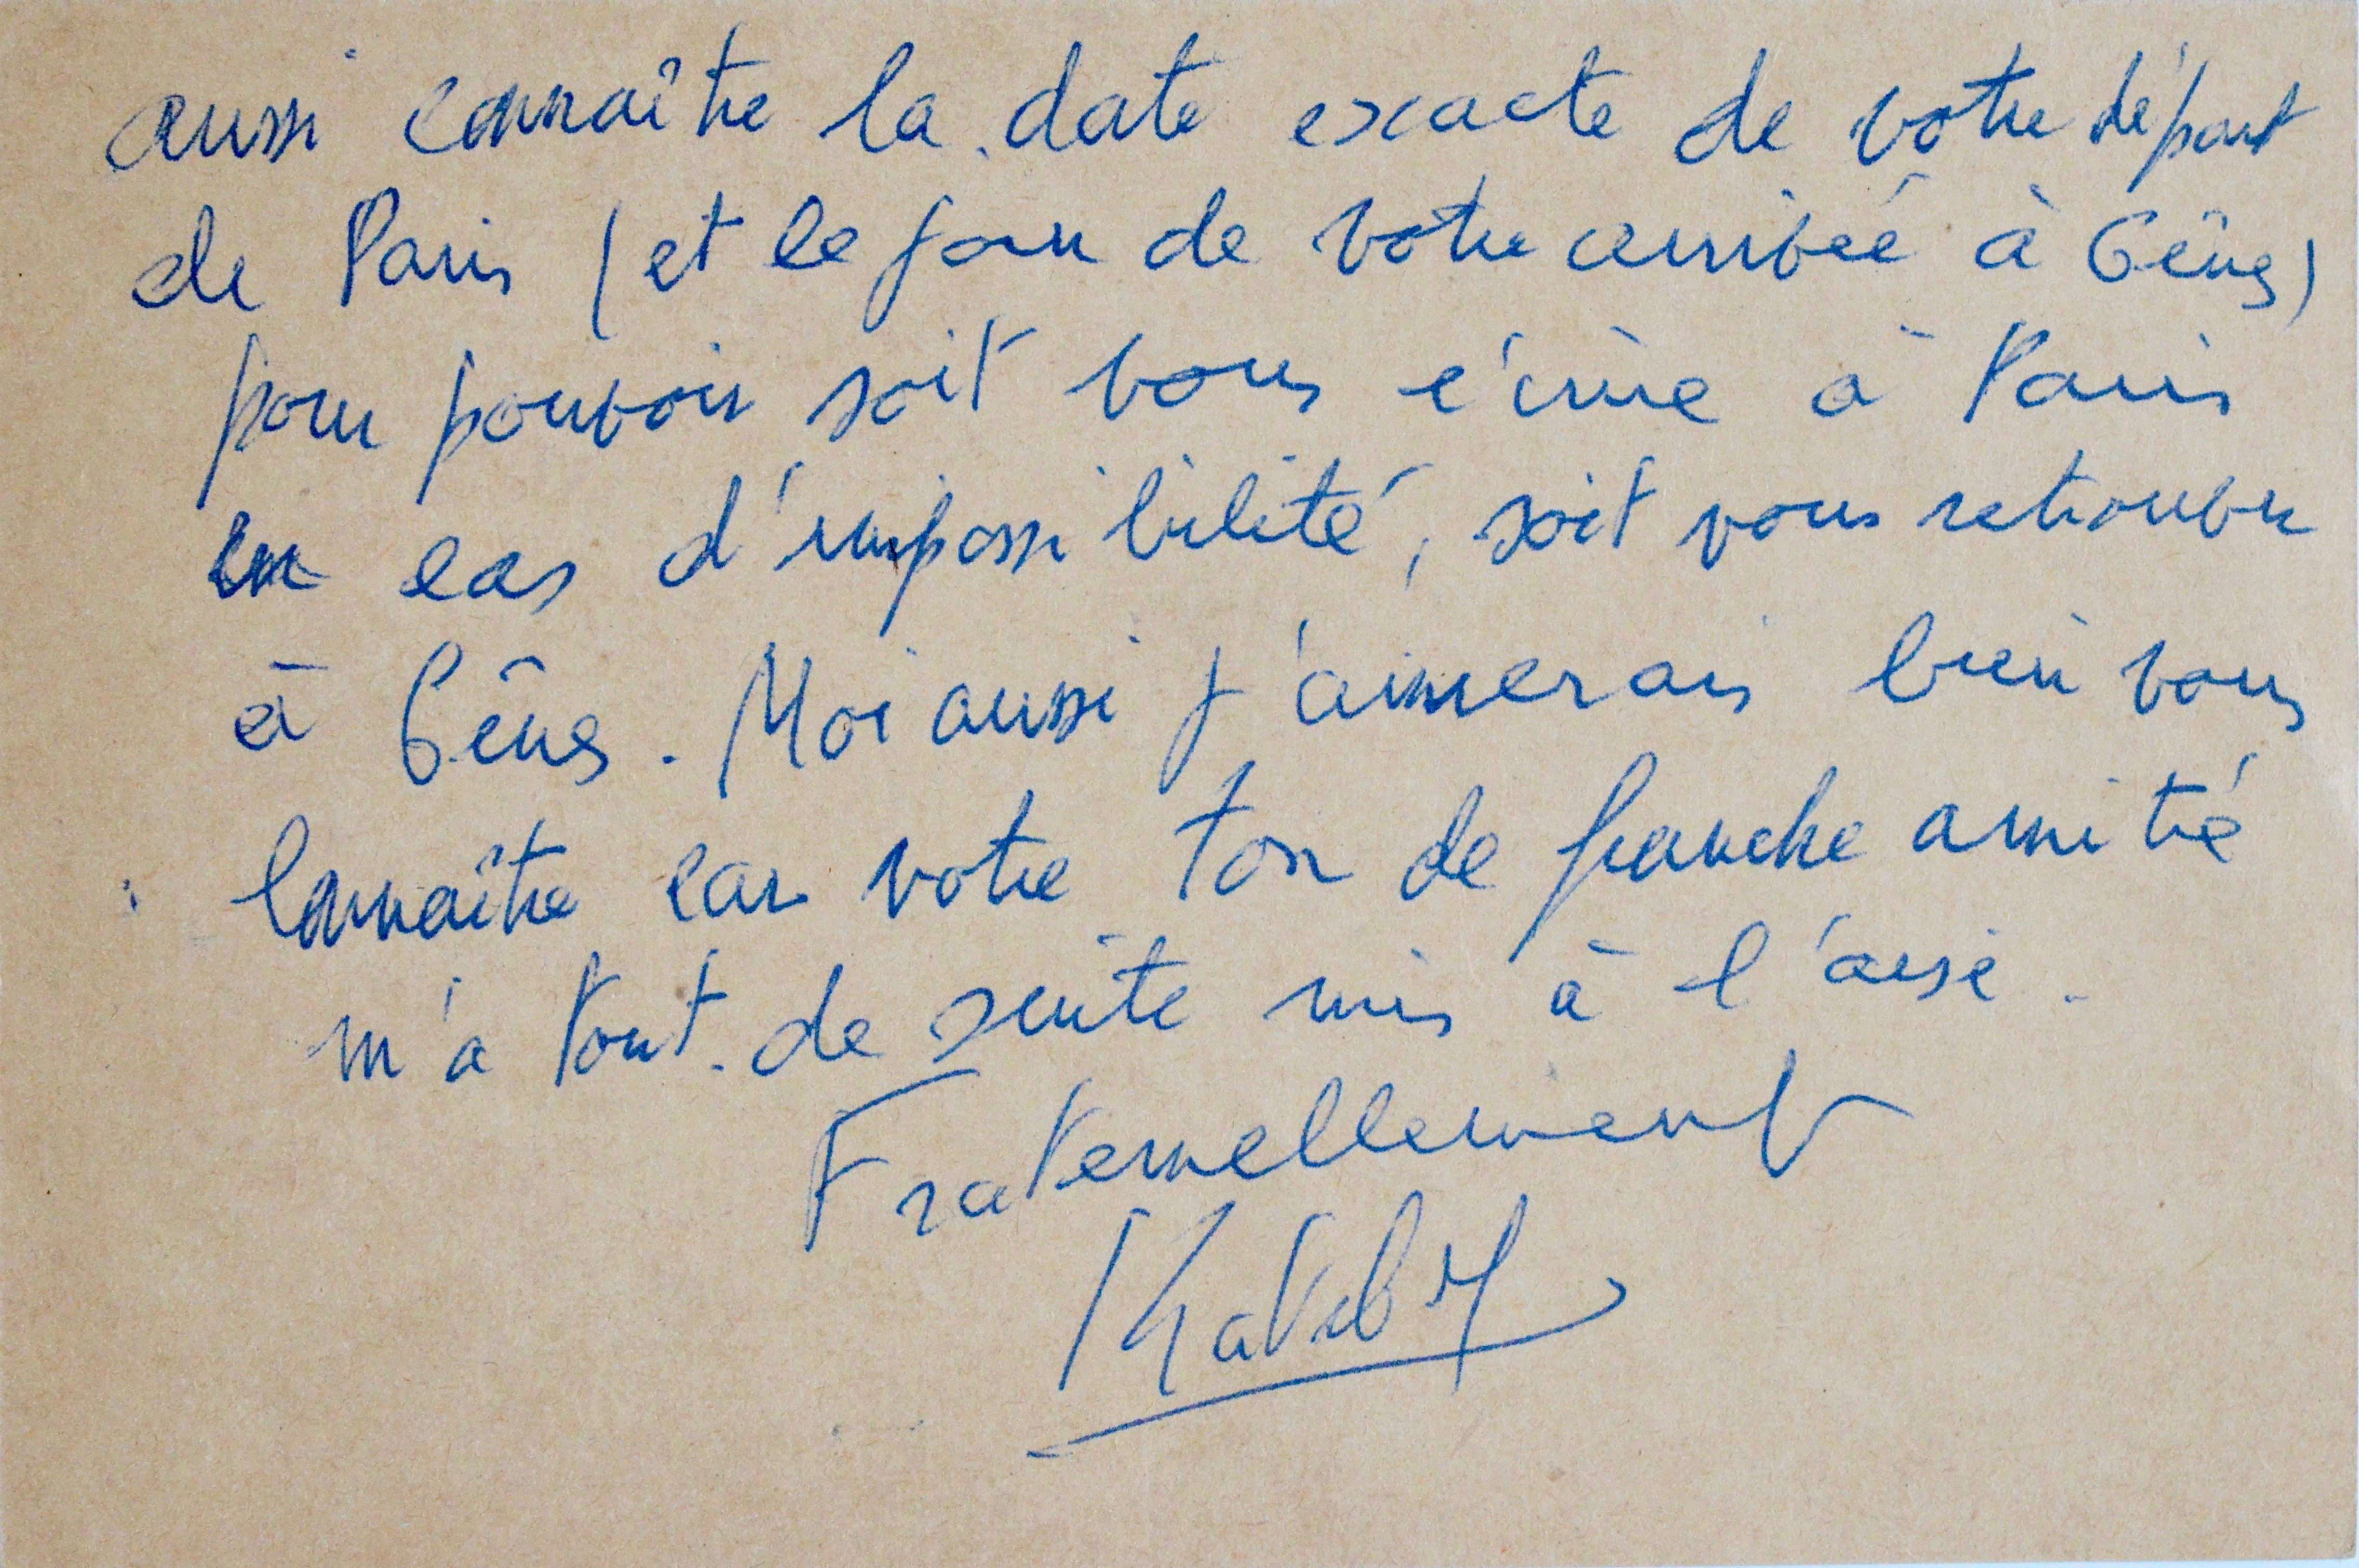 aussi connaître la date exacte de votre départ
de Paris (et le jour de votre arrivée à Gênes)
pour pouvoir soit vous écrire à Paris
en cas d'impossibilité, soit vous retrouver
à Gênes. Moi aussi j'aimerais bien vous
connaître car votre ton de franche amitié
m'a tout de suite mis à l'aise.
Fraternellement
Kateb Y